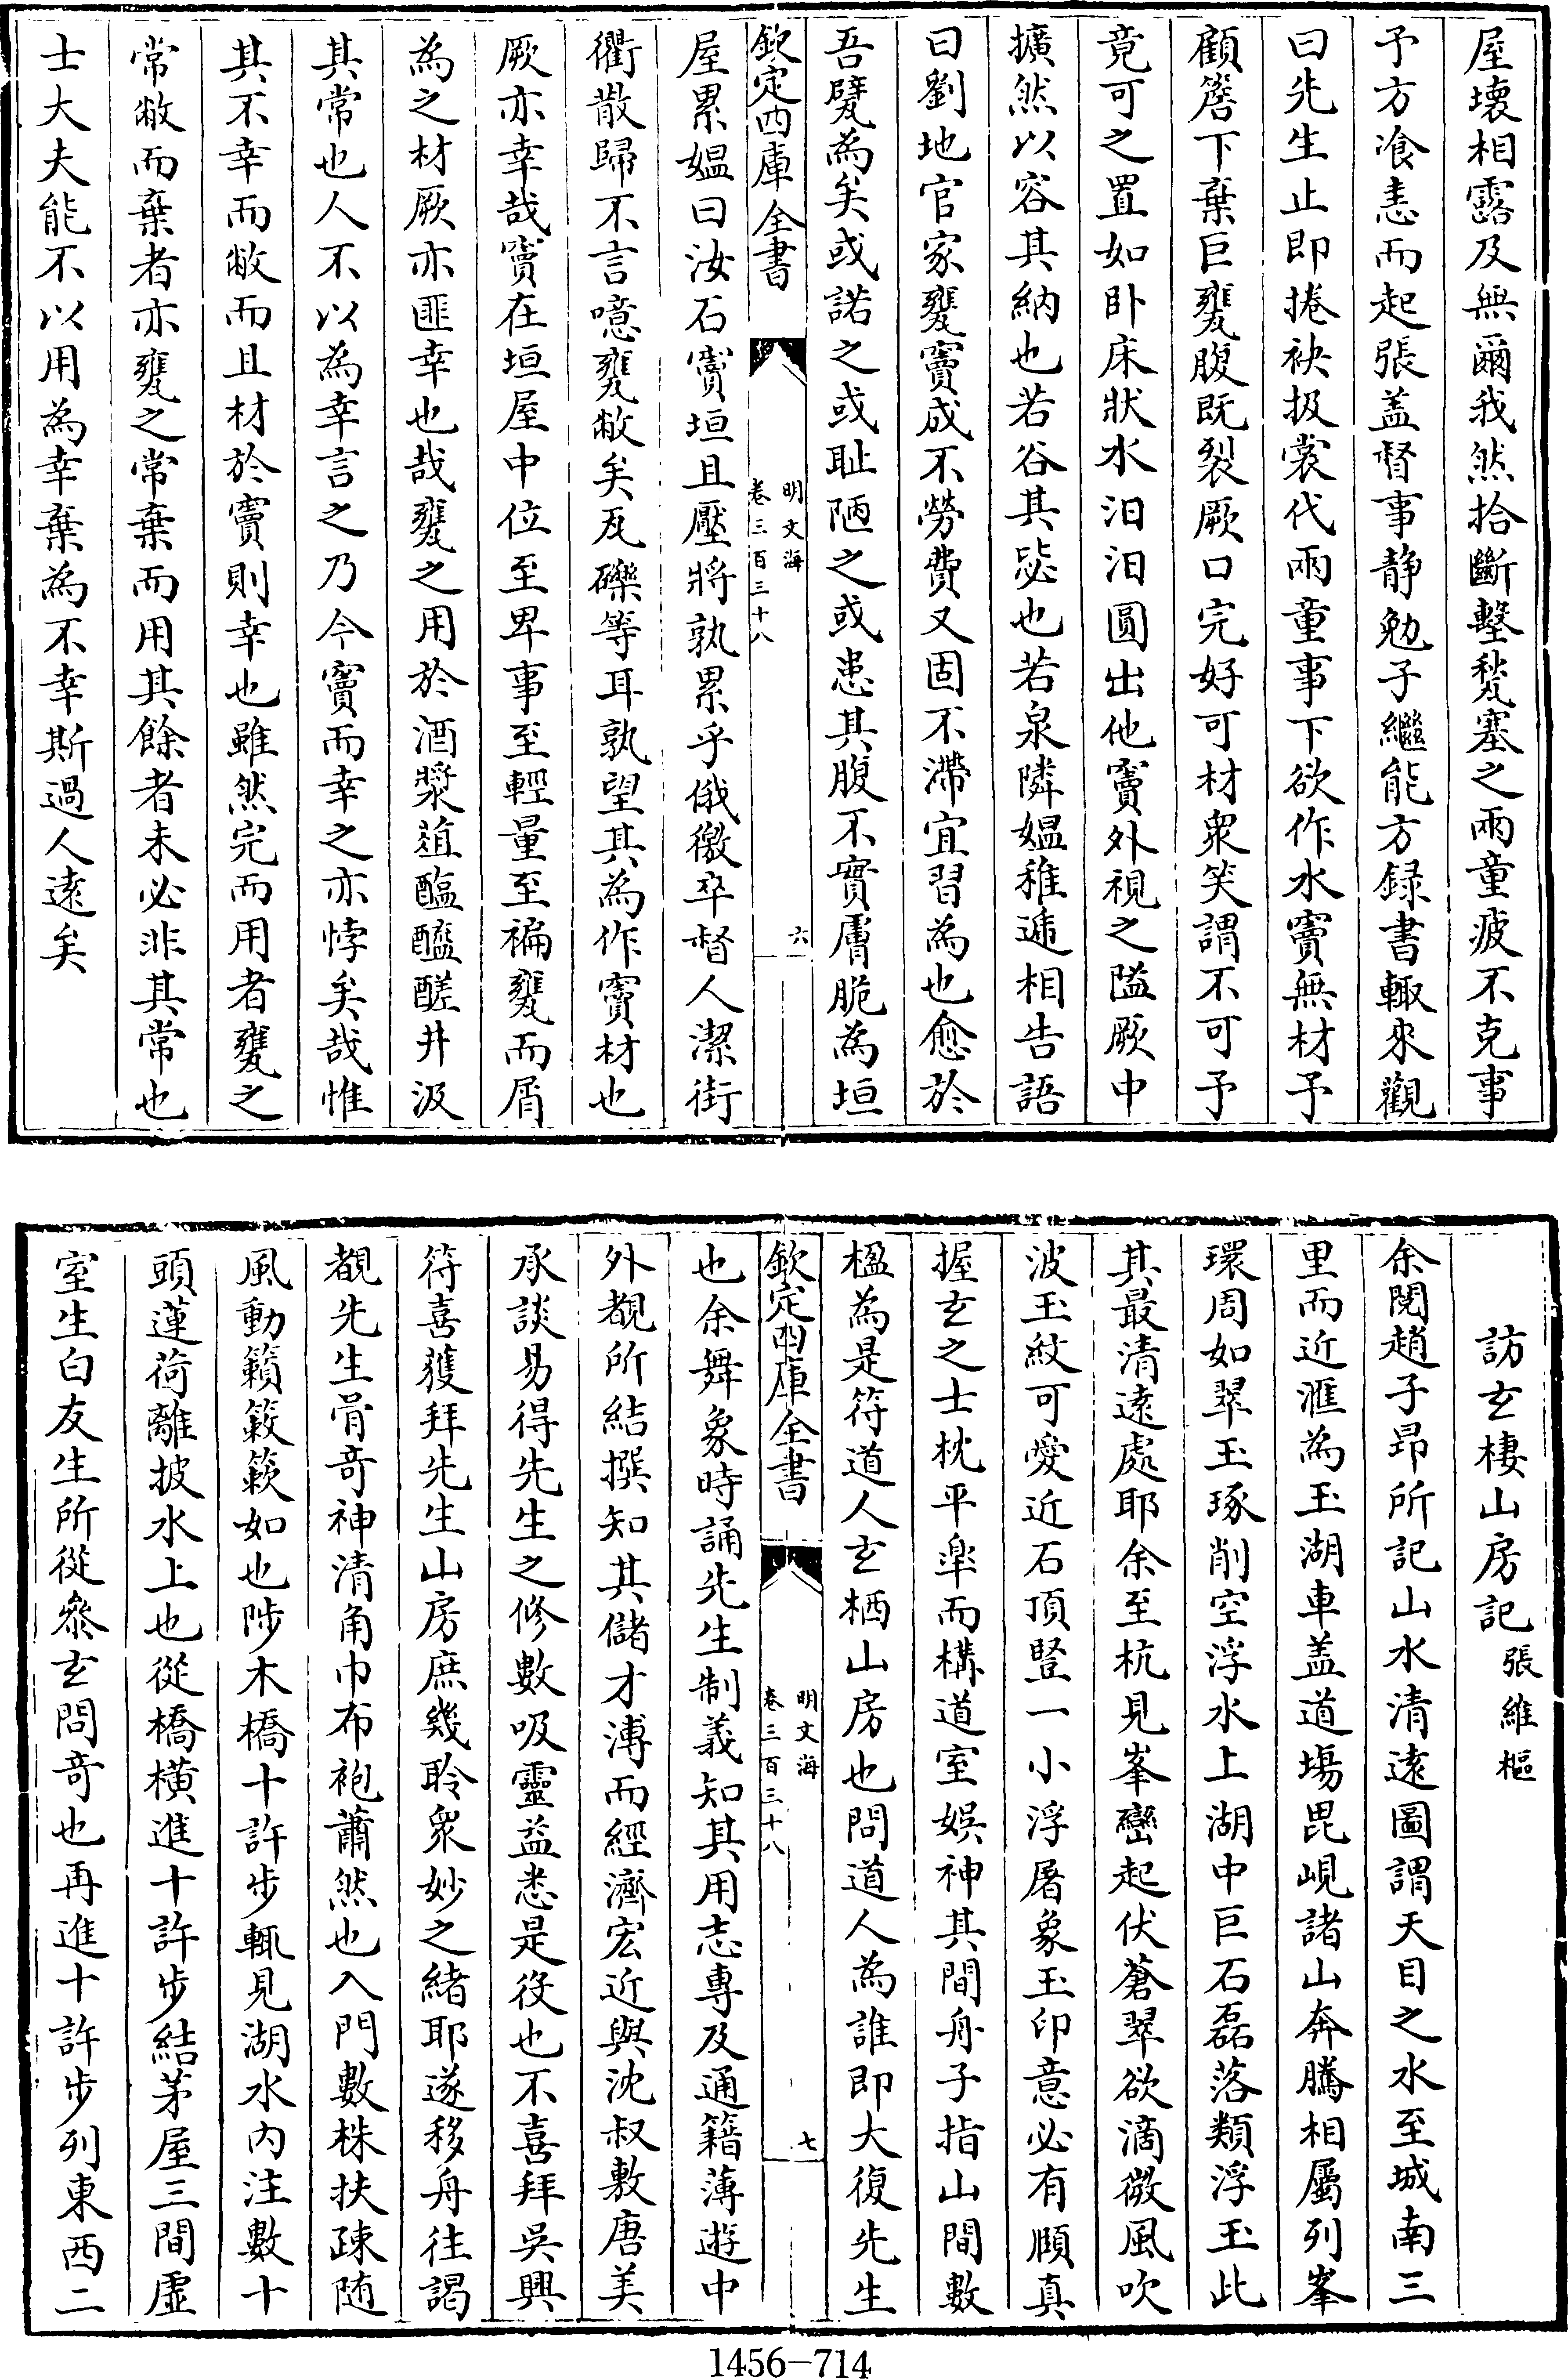 屋壞相露及無爾我然拾斷墼甃塞之兩童疲不克事
予方飡恚而起張盖督事静勉子繼能方録書輙來觀
曰先生止即捲袂扱裳代兩童事下欲作水竇無材予
顧簷下棄巨甕腹既裂厥口完好可材衆笑謂不可予
竟可之置如卧床狀水汩汩圓出他竇外視之隘厥中
擴然以容其納也若谷其毖也若泉隣媪稚遞相告語
曰劉地官家甕竇成不勞費又固不滯宜習為也愈於
吾甓為矣或諾之或耻陋之或患其腹不實膚脆為垣
欽定四庫全書
明文海
卷三百三十八
六
屋累媪曰汝石竇垣且壓將孰累乎俄徼卒督人潔街
衢散歸不言噫甕敝矣瓦礫等耳孰望其為作竇材也
厥亦幸哉竇在垣屋中位至卑事至輕量至褊甕而屑
為之材厥亦匪幸也哉甕之用於酒漿葅醢醯醝井汲
其常也人不以為幸言之乃今竇而幸之亦悖矣哉惟
其不幸而敝而且材於竇則幸也雖然完而用者甕之
常敝而棄者亦甕之常棄而用其餘者未必非其常也
士大夫能不以用為幸棄為不幸斯過人遠矣
訪玄棲山房記張維樞
余閱趙子昂所記山水清遠圖謂天目之水至城南三
里而近滙為玉湖車盖道塲毘峴諸山奔騰相屬列峯
環周如翠玉琢削空浮水上湖中巨石磊落類浮玉此
其最清遠處耶余至杭見峯巒起伏蒼翠欲滴微風吹
波玉紋可愛近石頂竪一小浮屠象玉印意必有頤真
握玄之士枕平臯而構道室娱神其間舟子指山間數
楹為是符道人玄栖山房也問道人為誰即大復先生
欽定四庫全書
明文海
卷三百三十八
七
也余舞象時誦先生制義知其用志專及通籍薄遊中
外覩所結撰知其儲才溥而經濟宏近與沈叔敷唐美
承談易得先生之修數吸靈益悉是役也不喜拜吳興
符喜獲拜先生山房庶幾聆衆妙之緒耶遂移舟往謁
覩先生骨竒神清角巾布袍蕭然也入門數株扶疎随
風動籟簌簌如也陟木橋十許步輒見湖水内注數十
頭蓮荷離披水上也從橋横進十許步結茅屋三間虚
室生白友生所從叅玄問竒也再進十許步列東西二
1456-714